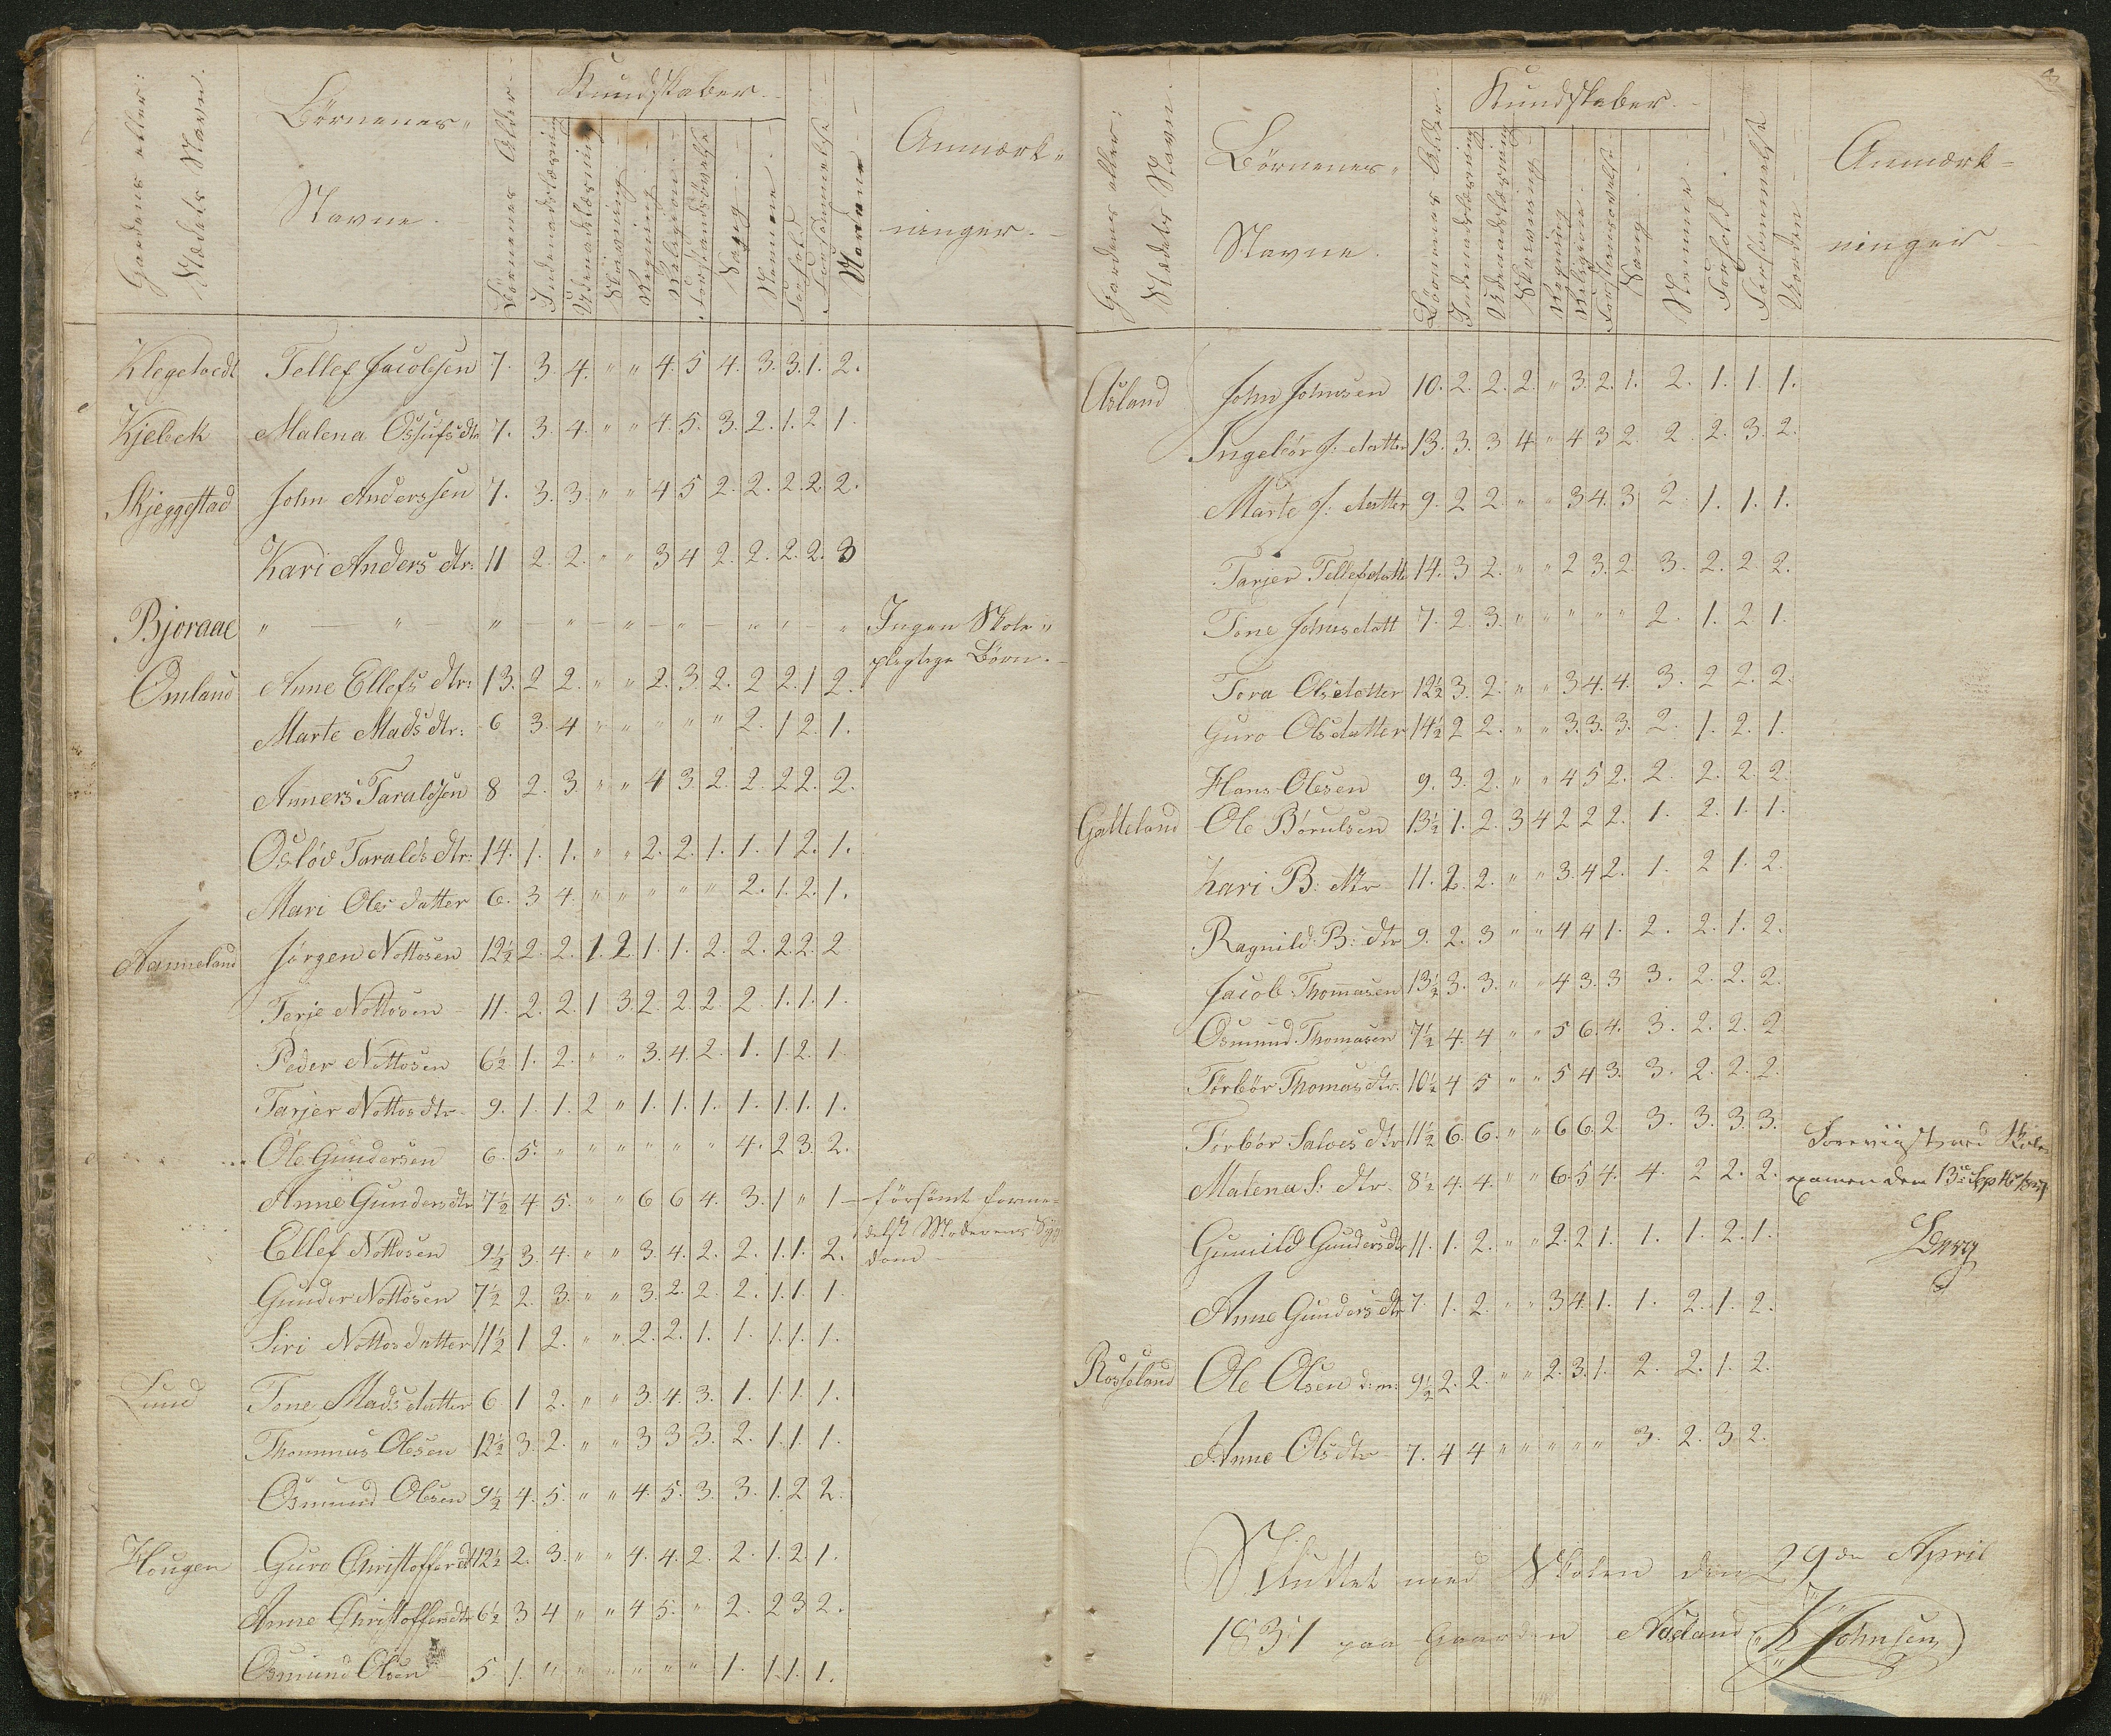 Gaardens eller: Stædets Navn.
Børnenes
Navne.
Børnenes Alder
Kundskaber
Indenadslæsning
Udenadslæsning
Skrivning
Regning
Religion
Forstandsøvelse
Sang
Nemme
Forhold
Forsømmelse
Anmærk-
ninger.
Klegetvedt Tellef Jacobsen 7. 3. 4. " " 4. 5 4. 3. 3. 1. 2.
Kjebek Malena Ossufsdtr 7. 3. 4. " " 4. 5. 3. 2. 1. 2 1.
Skjeggestad John Anderssen 7. 3. 3. " " 4 5 2. 2. 2. 2. 2.
Kari Anders dtr: 11 2. 2. " " 3 4 2. 2. 2. 2. 3
Bjoraae " — " — " — " — " — " — " " — " Ingen Skole-
pligtige Børn.
Omland Anne Ellefs dtr: 13. 2 2. " " 2. 3. 2. 2 2. 1 2.
Marte Mads dtr: 6 3. 4 " " " " " 2. 1 2. 1.
Anners Taraldsen 8 2. 3. " " 4 3. 2. 2. 2 2. 2.
Osløv Taralds dtr: 14. 1. 1. " " 2. 2. 1. 1. 1 2. 1.
Mari Ols datter 6. 3 4. " " " " " 2. 1. 2. 1.
Aanneland Jørgen Nottosen 12½ 2. 2. 1. 2. 1. 1. 2. 2. 2. 2. 2
Terje Nottosen 11. 2. 2. 1 3. 2. 2. 2. 2. 1. 1. 1.
Peder Nottosen 6½ 1. 2. " " 3. 4. 2. 1. 1. 2. 1
Tarjer Nottos dtr 9. 1. 1. 2 " 1. 1. 1. 1. 1. 1. 1.
Ole Gundersen 6. 5. " " " " " " 4. 2 3. 2.
Anne Gunders dtr 7½ 4 5. " " 6 6 4. 3. 1 " 1 — forsømt forme-
delst Moderens Syg-
dom
Ellef Nottosen 9½ 3. 4. " " 3. 4. 2. 2. 1. 1. 2.
Gunder Nottosen 7½ 2. 3. " " 3. 2. 2. 2. 1. 1. 1.
Siri Nottos datter 11½ 1 2. " " 2. 2. 1. 1. 1. 1. 1.
Lund Tone Mads datter 6 1 2. " " 3. 4. 3. 1. 1. 1. 1.
Thommas Olesen 12½ 3. 2. " " 3 3 3. 2. 1. 1. 1.
Osmund Olesen 9½ 4. 5. " " 4. 5. 3. 3. 1. 2 2.
Hougen Guro Christoffersdt 12½ 2. 3. " " 4. 4. 2. 2. 1. 2 1.
Anne Christoffersdtr 6½ 3 4 " " 4 5. " 2. 2 3 2.
Osmund Olsen 5. 1. " " " " " " 1. 1. 1. 1.
Gaardens eller: Stædets Navn.
Børnenes
Navne.
Børnenes Alder
Kundskaber.
Indenadslæsning
Udenadslæsning
Skrivning
Regning
Religion
Forstandsøvelse
Sang
Nemme
Forhold
Forsømmelse
Anmærk-
ninger
Aasland John Johnsen 10. 2. 2. 2. " 3. 2. 1. 2. 1. 1. 1.
Ingebør J: datter 13. 3. 3 4 " 4 3 2. 2. 2. 3. 2.
Marte J: datter 9. 2 2. " " 3 4. 3. 2. 1. 1. 1.
Tarjer Tellefsdatt 14. 3 2. " " 2 3. 2. 3. 2. 2. 2.
Tone Johnsdatt 7. 2. 3. " " " " " 2. 1. 2 1.
Tora Olsdatter 12½ 3. 2. " " 3 4. 4. 3. 2 2. 2.
Guro Olsdatter 14½ 2 2. " " 3. 3. 3. 2. 1. 2. 1.
Hans Olesen 9. 3. 2. " " 4 5 2. 2. 2. 2. 2.
Galteland Ole Børulsen 13½ 1. 2. 3 4 2 2 2. 1. 2. 1. 1.
Kari B: dtr 11. 2. 2. " " 3. 4 2. 1. 2 1. 2.
Ragnild B: dtr 9. 2. 3 " " 4 4 1. 2. 2. 1. 2.
Jacob Thomasen 13½ 3. 3. " " 4 3. 3 3. 2. 2. 2.
Osmund Thomasen 7½ 4. 4 " " 5 6. 4. 3. 2. 2. 2
Tørbør Thomas dtr. 10½ 4 5 " " 5 4 3. 3. 2. 2. 2.
Tørbør Salves dtr 11½ 6. 6. " " 6 6. 2. 3. 3. 3. 3. Foreviist ved Skole-
Malena S: dtr 8½ 4. 4. " " 6. 5 4. 4. 2 2. 2. examen den 13de
Gunild Gunders dtr 11. 1. 2. " " 2. 2 1. 1. 1. 2. 1.
Anne Gunders dtr 7. 1. 2. " " 3 4 1. 1. 2. 1. 2.
Rosseland Ole Olsen 9½ 2. 2. " " 2. 3. 1. 2. 2. 1. 2.
Anne Ols dtr 7. 4 4 " " " " " 3. 2. 3 2.
Sluttet med Skolen den 29de April
1831 paa Gaarden Aasland K Johnsen